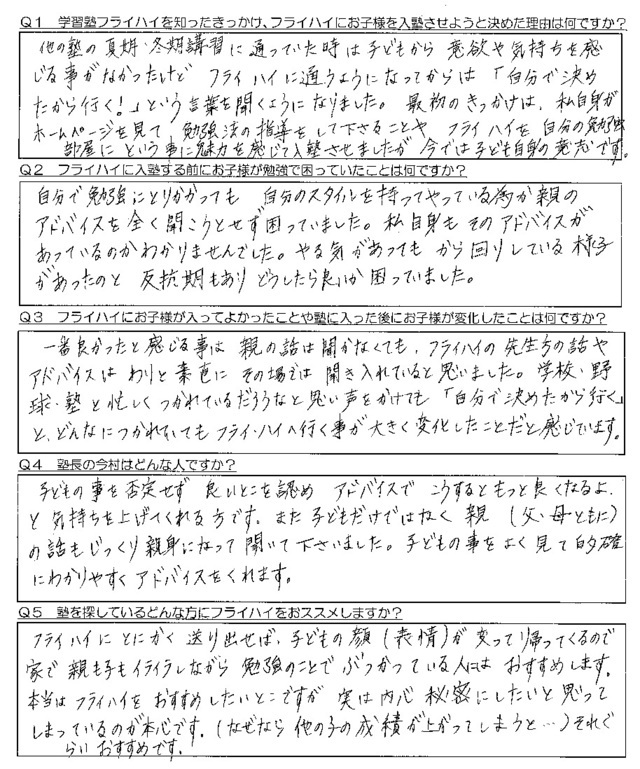 Q１　学習塾フライハイを知ったきっかけ、フライハイにお子様を入塾させようと決めた理由は何ですか？
他の塾の夏期・冬期講習に通っていた時は子どもから意欲や気持ちを感
じる事がなかったけど フライハイに通うようになってからは「自分で決め
たから行く！」という言葉を聞くようになりました。最初のきっかけは、私自身が
ホームページを見て、勉強法の指導をして下さることや フライハイを自分の勉強
部屋にという事に魅力を感じて入塾させましたが 今では子ども自身の意志です。
Q２　フライハイに入塾する前にお子様が勉強で困っていたことは何ですか？
自分で勉強にとりかかっても 自分のスタイルを持ってやっている為か親の
アドバイスを全く聞こうとせず困っていました。私自身もそのアドバイスが
あっているのかわかりませんでした。やる気があってもから回りしている様子
があったのと 反抗期もありどうしたら良いか困っていました。
Q３　フライハイにお子様が入ってよかったことや塾に入った後にお子様が変化したことは何ですか？
一番良かったと感じる事は親の話は聞かなくても、フライハイの先生方の話や
アドバイスはわりと素直にその場では聞き入れていると思いました。学校・野
球・塾と忙しくつかれているだろうなと思い声をかけても「自分で決めたから行く」
と、どんなにつかれていてもフライ・ハイへ行く事が大きく変化したことだと感じています。
Q４　塾長の今村はどんな人ですか？
子どもの事を否定せず 良いとこを認め アドバイスで こうするともっと良くなるよ、
と気持ちを上げてくれる方です。また子どもだけではなく親（父・母ともに）
の話もじっくり親身になって聞いて下さいました。子どもの事をよく見て的確
にわかりやすくアドバイスをくれます。
Q５　塾を探しているどんな方にフライハイをおススメしますか？
フライハイにとにかく送り出せば、子どもの顔（表情）が変って帰ってくるので
家で親も子もイライラしながら勉強のことでぶつかっている人にはおすすめします。
本当はフライハイをおすすめしたいとこですが 実は内心秘密にしたいと思って
しまっているのが本心です。（なぜなら他の子の成績が上がってしまうと…）それぐ
らいおすすめです。